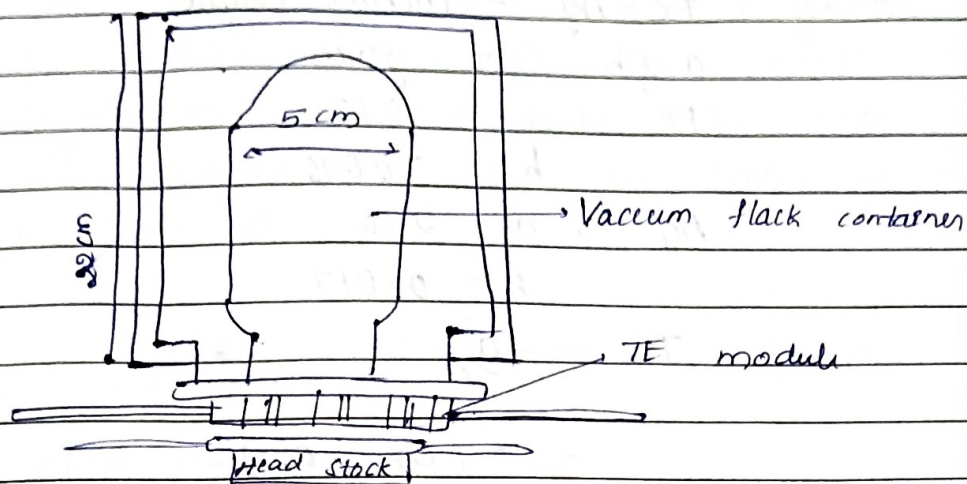 5 cm
Vaccum flack container
22 cm
TE module
Head Stock